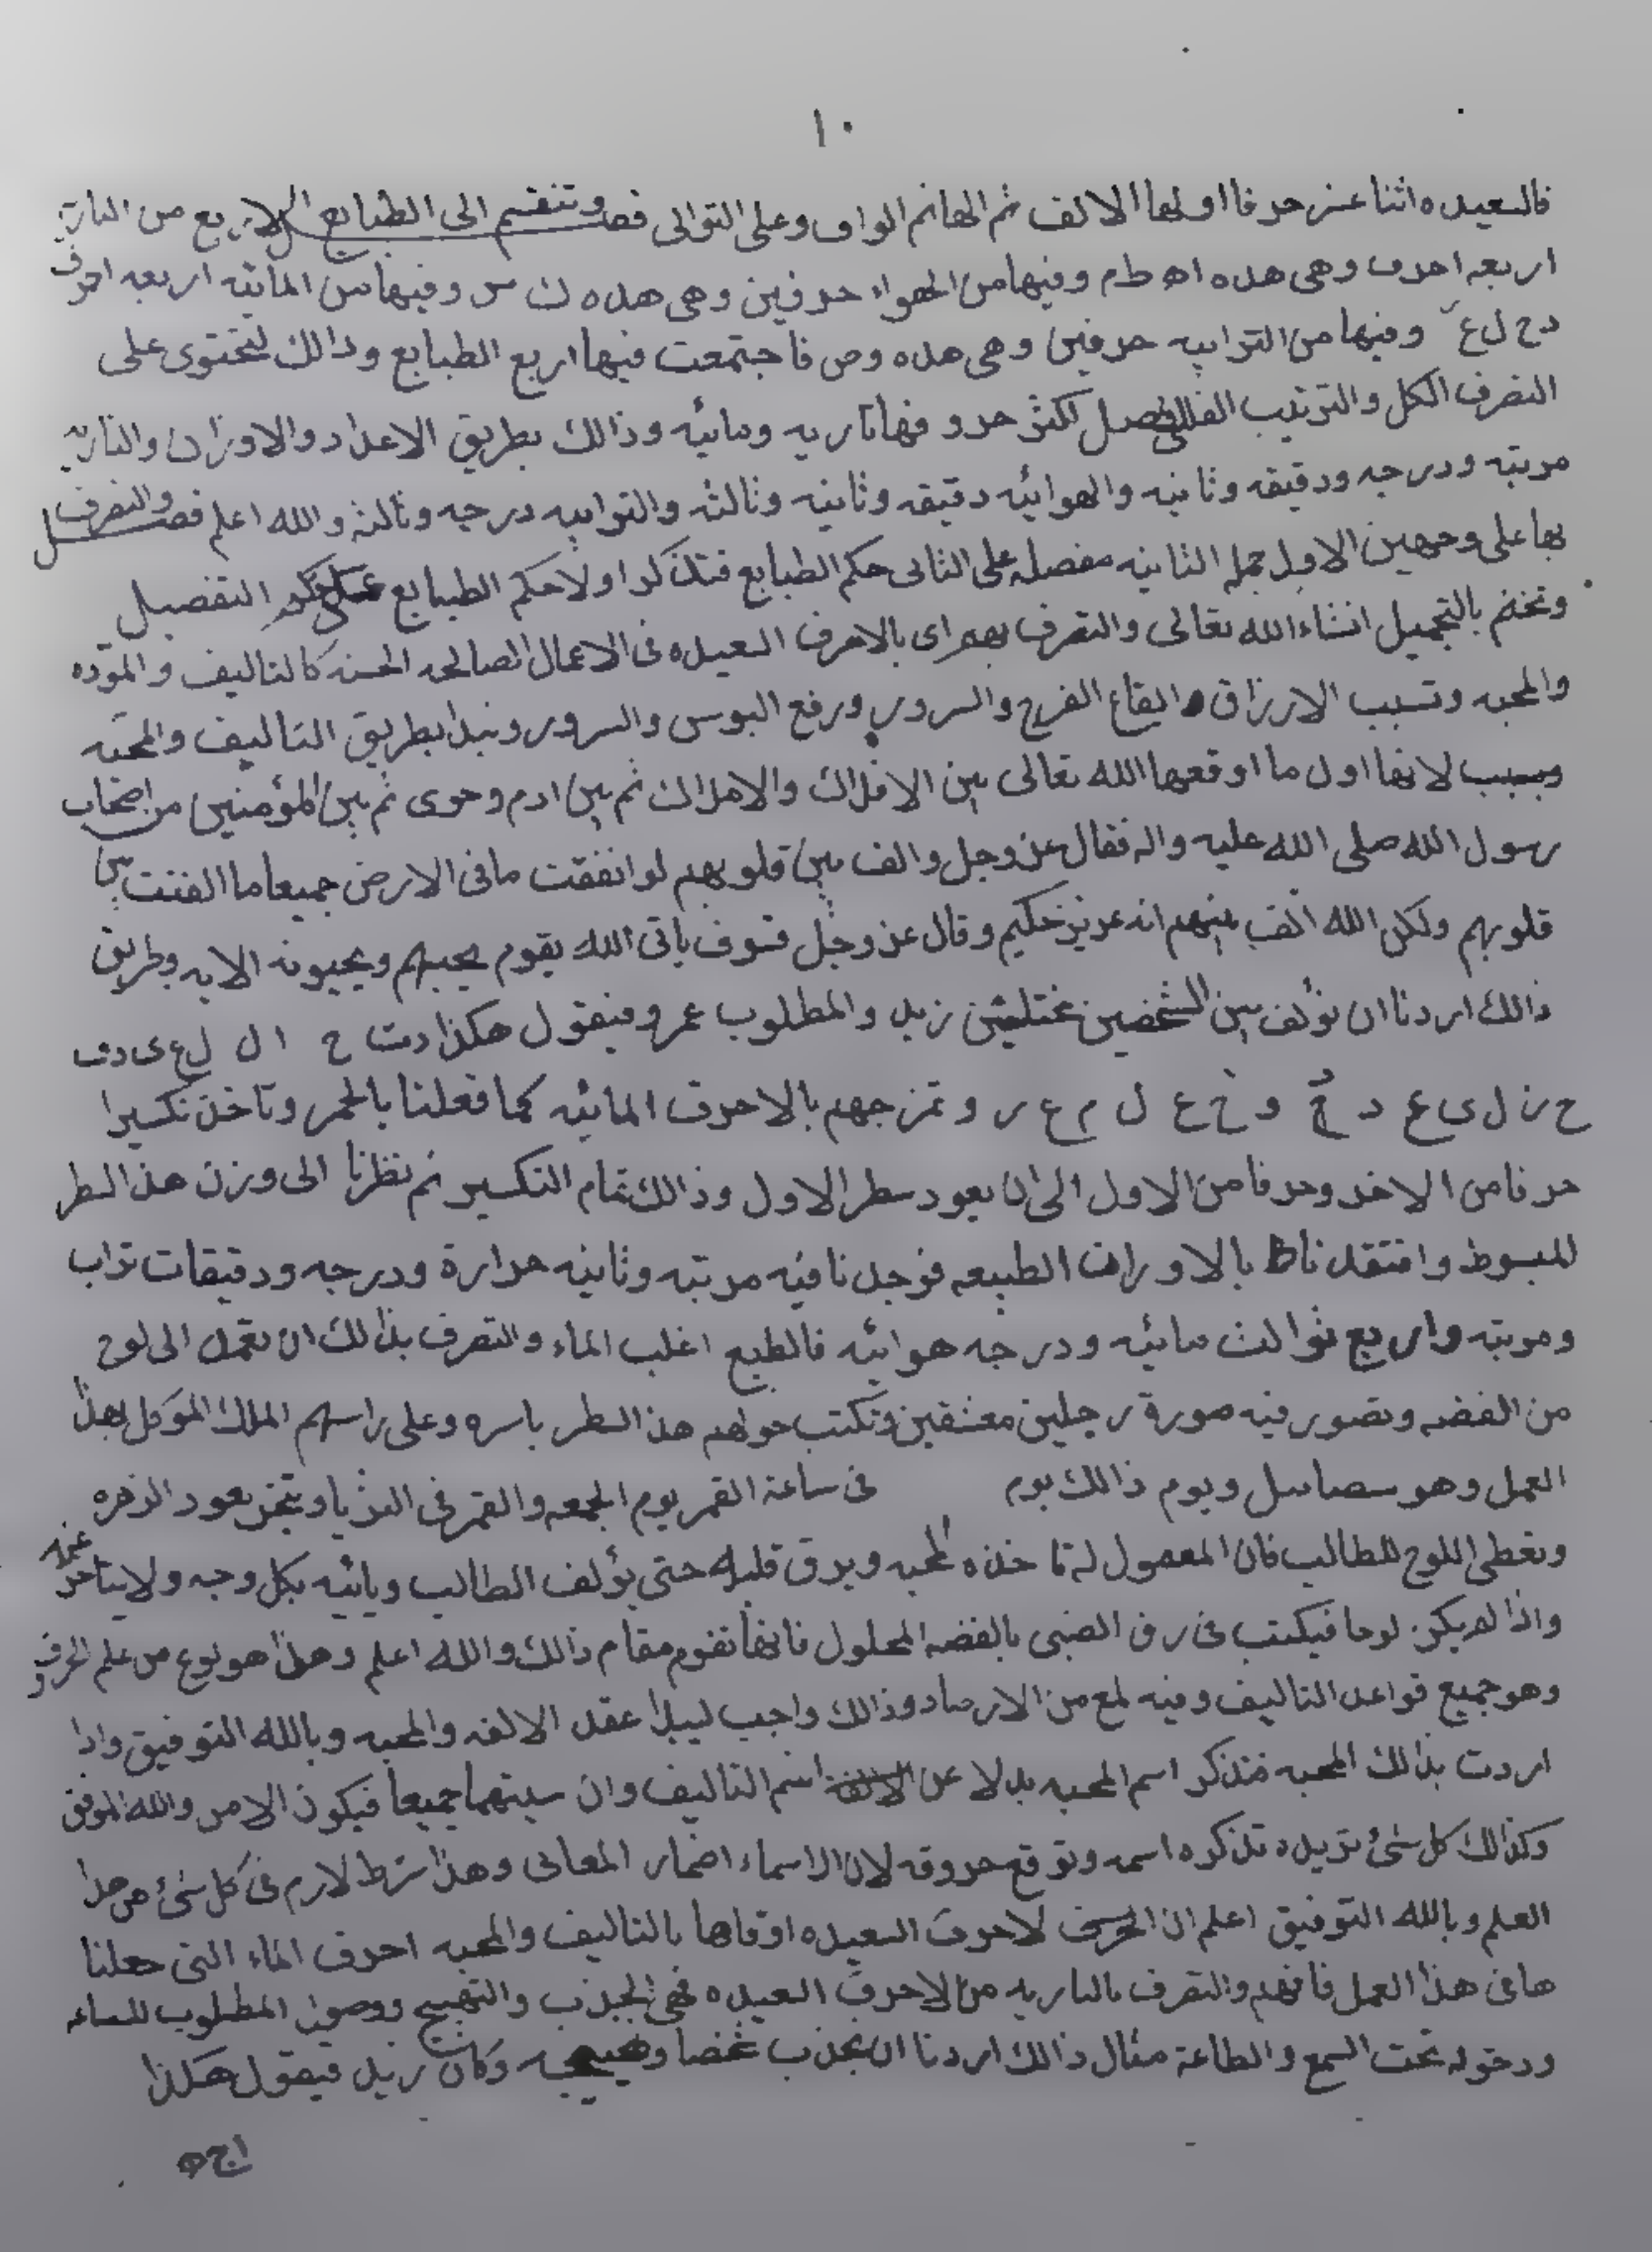 ١٠
فالسعيده اثنا عشر حرفا اولها الالف ثم الها ثم الواو وعلى التوالى فصل وتنقسم الى الطبايع الاربع من الناريه
اربعه احرف وهى هده ا ه ط م وفيها من الهواء حرفين وهى هده ك س وفيها من المائيه اربعه احرف
د ح ل ع وفيها من الترابيه حرفين وهى هده و ص فاجتمعت فيها اربع الطبايع ودالك لتحتوى على
التصرف الكل والترتيب الفلكى فصل اكثر حروفها ناريه ومائيه وذالك بطريق الاعداد والاوزان والناريه
مرتبه ودرجه ودقيقه وثانيه والهوائيه دقيقه وثانيه وثالثه والترابيه درجه وثالثه والله اعلم فصل والتصرف
بها على وجهين الاول جمله الثانيه مفصله على الثانى حكم الطبايع فتذكر اولا حكم الطبايع على حكم التفصيل
ونختم بالتجميل انشاء الله تعالى والتصرف بهم اى بالاحرف السعيده فى الاعمال الصالحه الحسنه كالتاليف والمؤده
والمحبه وتسبب الارزاق وايقاع الفرح والسرور ورفع البوس والسرور ونبدا بطريق التاليف والمحبه
وبسبب لانها اول ما اوقعها الله تعالى بين الافلاك والاملاك ثم بين ادم وحوى ثم بين المؤمنين من اصحاب
رسول الله صلى الله عليه واله فقال عز وجل والف بين قلوبهم لو انفقت ما فى الارض جميعا ما الفت بين
قلوبهم ولكن الله الف بينهم انه عزيز حكيم وقال عز وجل فسوف ياتى الله بقوم يحبهم ويحبونه الايه وطريق
ذالك اردنا ان نؤلف بين الشخصين مختلفين زيد والمطلوب عمرو فنقول هكذا د ت ح ا ل ل ع ى د ف
ح ز ل ى ع د ح و خ ع ل م ع ر و تمزجهم بالاحرف المائيه كما فعلنا بالحمر وتاخذ تكسيرا
حرفا من الاخر وحرفا من الاول الى ان يعود سطر الاول وذالك تمام التكسير ثم نظرنا الى وزن هذ السطر
المبسوط وافتقدناط بالاوران الطبيعه فوجدنا فيه مرتبه وثانيه حرارة ودرجه ودقيقات تراب
ومرتبه واربع ثوالث مائيه ودرجه هوائيه فالطبع اغلب الماء والتصرف بذالك ان تعمد الى لوح
من الفضه وتصور فيه صورة رجلين معتنقين وتكتب حولهم هذ السطر باسره وعلى راسهم الملك المؤكل بهذ
العمل وهو ويوم ذالك يوم فى ساعة القمر يوم الجمعه والقمر فى الثريا ويبخر بعود الزهره
وتعطى اللوح للطالب فان المعمول له تاخذه المحبه ويرق قلبه حتى يؤلف الطالب وياتيه بكل وجه ولا يتاخر عنه
واذا لم يكن لوحا فيكتب فى رق الضبى بالفضه المحلول فانها تقوم مقام ذالك والله اعلم وهذا هو نوع من علم الحروف
وهو جميع قواعد التاليف وفيه لمع من الارصاد وذالك واجب ليبلا عقد الالفه والمحبه وبالله التوفيق واذا
اردت بذالك المحبه فتذكر اسم المحبه بدلا عن الالفه اسم التاليف وان سيتهما جميعا فيكون الامر والله الموفق
وكذالك كل شئ تريده تذكره اسمه وتوقع حروفه لان الاسماء اضمار المعانى وهذا شرط لازم فى كل شئ من هدا
العلم وبالله التوفيق اعلم ان لاحرف السعيده اوقاها بالتاليف والمحبه احرف الماء التى جعلنا
ها فى هذا العمل فافهم والتصرف بالناريه من الاحرف السعيده فهى الجذب والتهييج ووصول المطلوب للساعه
ودخوله تحت السمع والطاعة مثال ذالك اردنا ان نجذب شخصا وكان زيد فيقول هكذا
ا ج ه